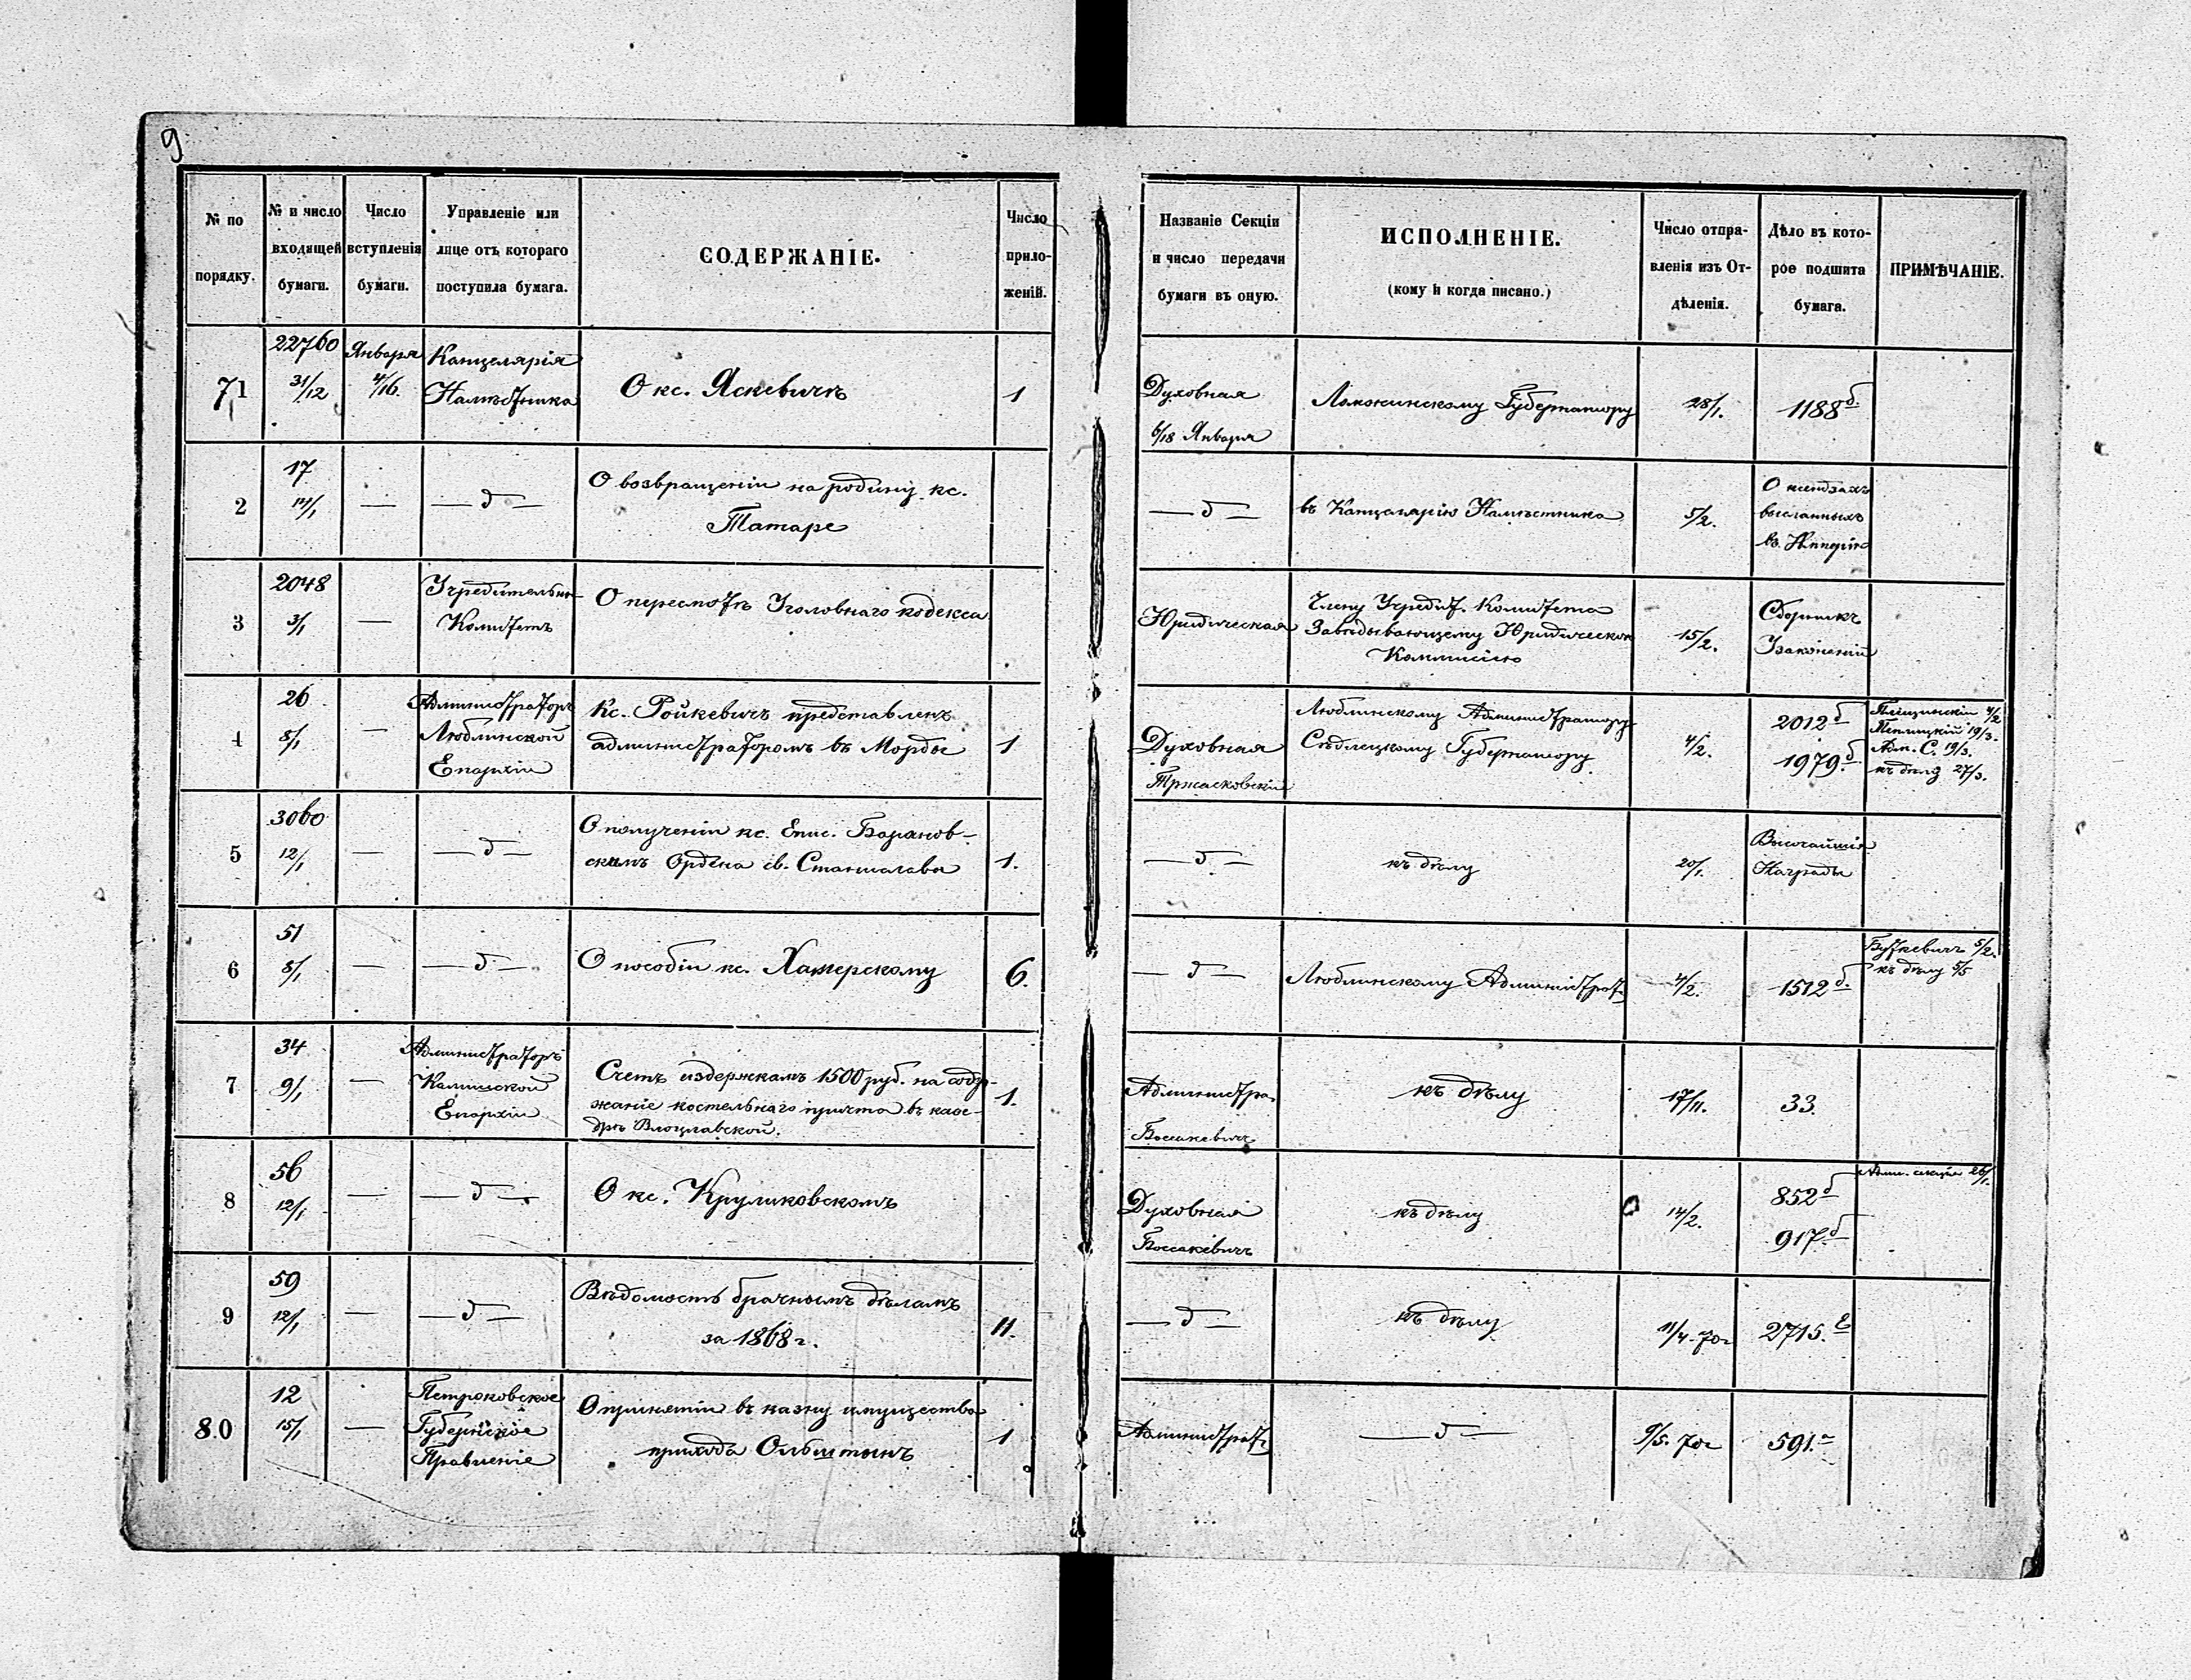 9
№ по
порядку.
№ и число
входящей
бумаги.
Число
вступленія
бумаги.
Управленіе или
лице отъ котораго
поступила бумага.
СОДЕРЖАНІЕ.
Число
прило-
женій.
Названіе Секціи
и число передачи
бумаги въ оную.
ИСПОЛНЕНІЕ.
(кому и когда писано.)
Число отпра-
вленія изъ От-
дѣленія.
Дѣло въ кото-
рое подшита
бумага.
ПРИМѢЧАНІЕ.
71
22760
31/12
Января
4/16.
Канцелярія
Намѣстника
О кс. Яскевичѣ
1
Духовная
6/18 Января
Ломжинскому Губернатору
28/1.
1188 б.
2
17
—
— д —
О возвращеніи на родину кс.
Татаре
— д —
въ Канцелярію Намѣстника
5/2.
О ксендзахъ
высланныхъ
въ Имперію
3
2048
3/1
—
Учредительн.
Комитетъ
О пересмотѣ Уголовнаго кодекса
Юридическая
Члену Учредит. Комитета
Завѣдывающему Юридическою
Коммисіею
15/2.
Сборникъ
Узаконеній
4
26
8/1
—
Администраторъ
Люблинской
Епархіи
Кс. Ройкевичъ представленъ
администраторомъ въ Морды
1
Духовная
Тржасковскій
Люблинскому Администратору
Сѣдлецкому Губернатору
4/2.
2012 б
1979 б
4/2
19/3.
Адм. С. 19/3.
къ дѣлу 27/3.
5
3060
12/1
—
— д —
О полученіи кс. Епис. Баранов-
скимъ Ордена св. Станислава
1.
— д —
къ дѣлу
20/1.
Высочайшія
Награды
6
51
8/1
—
— д —
О пособіи кс. Хамерскому
6.
— д —
Люблинскому Администрат.
4/2.
1512 б.
Буткевичъ 5/2.
къ дѣлу
7
34
9/1
—
Администраторъ
Калишской
Епархіи
Счетъ издержкамъ 1500 руб. на содер-
жаніе костельнаго причта въ каѳе-
дрѣ Влоцлавской.
1.
Администра.
къ дѣлу
17/11.
33.
8
56
12/1
—
— д —
О кс. Круликовскомъ
Духовная
къ дѣлу
14/2.
852 б
917 б
Адм. секція 26/1.
9
59
12/1
—
— д —
Вѣдомость брачнымъ дѣламъ
за 1868 г.
11.
— д —
къ дѣлу
11/4. 70 г
2715.
80
12
15/1
—
Петроковское
Губернское
Правленіе
О принятіи въ казну имущества
прихода Ольштынъ
1
Администрат.
— д —
9/5. 70 г
591.